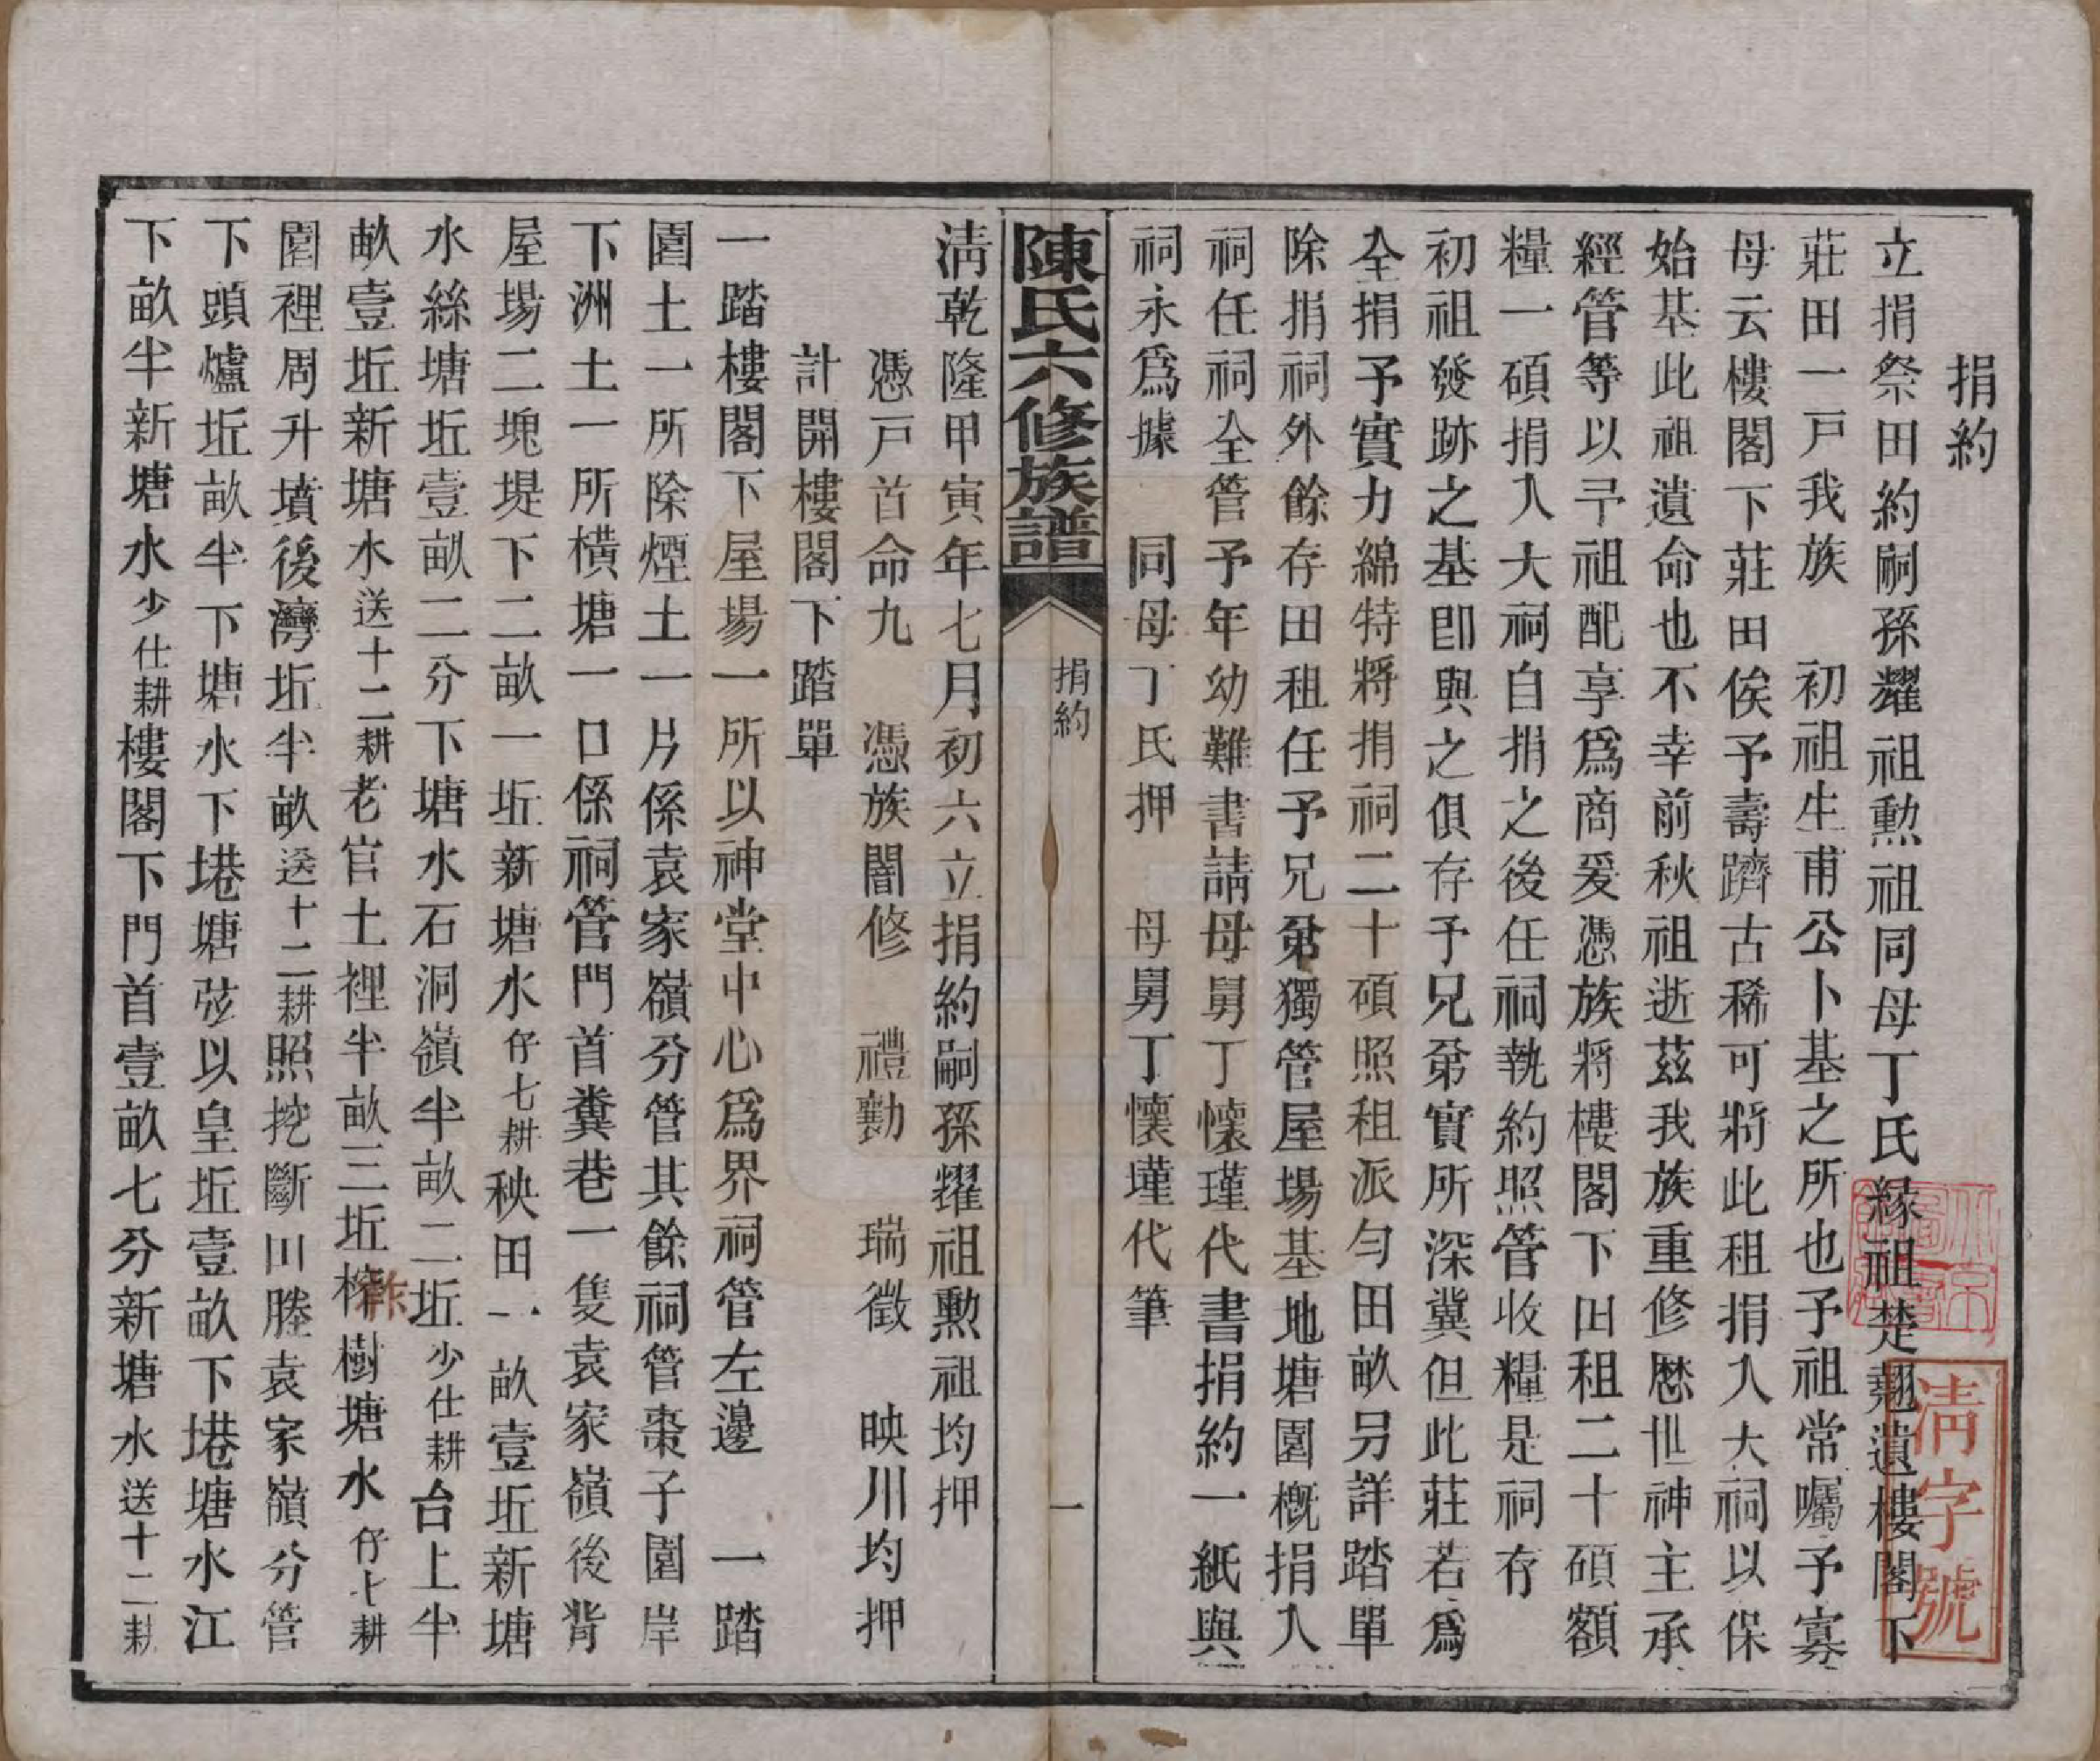 捐約
立捐祭田約嗣孫耀祖勲祖同母丁氏緣祖楚翹遺樓閣下
莊田一戸我族　初祖生甫公卜基之所也予祖常囑予寡
母云樓閣下莊田俟予壽躋古稀可將此租捐入大祠以保
始基此祖遺命也不幸前秋祖逝茲我族重修歷世神主承
經管等以予祖配享爲商爰憑族將樓閣下田租二十碩額
糧一碩捐入大祠自捐之後任祠執約照管收糧是祠存
初祖發跡之基卽與之俱存予兄弟實所深冀但此莊若爲
全捐予實力綿特將捐祠二十碩照租派勻田畝另詳踏單
除捐祠外餘存田租任予兄弟獨管屋場基地塘園概捐入
祠任祠全管予年幼難書請母舅丁懷瑾代書捐約一紙與
祠永爲據　同母丁氏押　母舅丁懷瑾代筆
陳氏六修族譜
捐約
一
清乾隆甲寅年七月初六立捐約嗣孫耀祖勲祖均押
憑戸首命九　憑族闇修　禮勷　瑞徵　映川均押
計開樓閣下踏單
一踏樓閣下屋場一所以神堂中心爲界祠管左邊　一踏
園土一所除煙土一片係袁家嶺分管其餘祠管棗子園岸
下洲土一所橫塘一口係祠管門首糞巷一隻袁家嶺後背
屋場二塊堤下二畝一坵新塘水仔七耕秧田一畝壹坵新塘
水絲塘坵壹畝二分下塘水石洞嶺半畝二坵少仕耕台上半
畝壹坵新塘水送十二耕老官土裡半畝三坵榨樹塘水仔七耕
園裡周升墳後灣坵半畝送十二耕照挖斷田塍袁家嶺分管
下頭爐坵畝半下塘水下塂塘弦以皇坵壹畝下塂塘水江
下畝半新塘水少仕耕樓閣下門首壹畝七分新塘水送十二耕
清字號